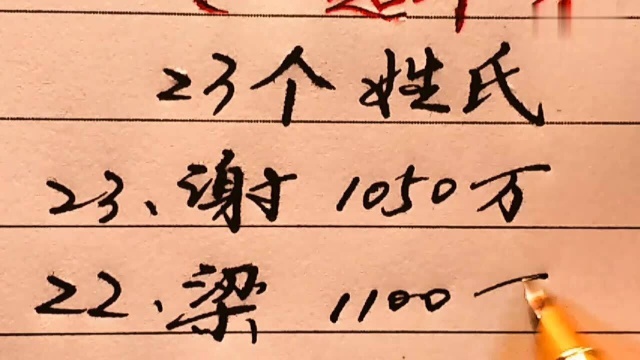 23个姓氏
23、谢 1050万
22、梁 1100